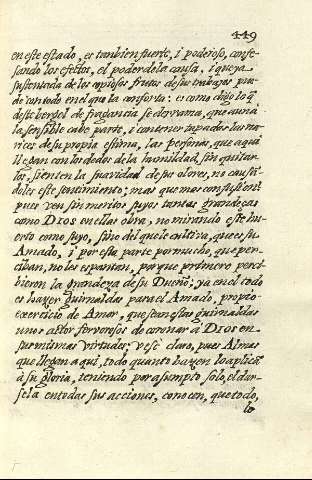 449
en este estado, es tanbien fuerte, i poderoso, confe-
sando los efectos, el poder de la causa, i que ya
sustentada de los copiosos frutos de su trabajo, pue
de un todo en el que la conforta: es como digo lo q̃
deste bergel de fragancia se derrama, que aun a
la sensible cabe parte, i con tener tapadas las na-
rices de su propia estima, las personas, que aqui
llegan con los dedos de la humildad, sin quitar-
los, sienten la suavidad de sus olores, no causan
doles este sentimiento; mas que mas confusion
pues ven sin meritos suyos tantas grandeças
como DIOS en ellas obra, no mirando este hu-
erto como suyo, sino del que le cultiva, que es su
Amado, i por esta parte por mucho, que per-
ciban, no les espantan, porque primero perci
bieron la grandeza de su Dueño; ya en el todo
es hazer guirnaldas para el Amado, propio
exercicio de Amar, que sean estas guirnaldas
unos actos fervorosos de coronar à DIOS en
sus mismas virtudes; vese claro, pues Almas
que llegan a qui, todo quanto hazen lo aplicã
à su gloria, teniendo por asumpto solo, el dar-
sela en todas sus acciones, conocen, que todo,
lo